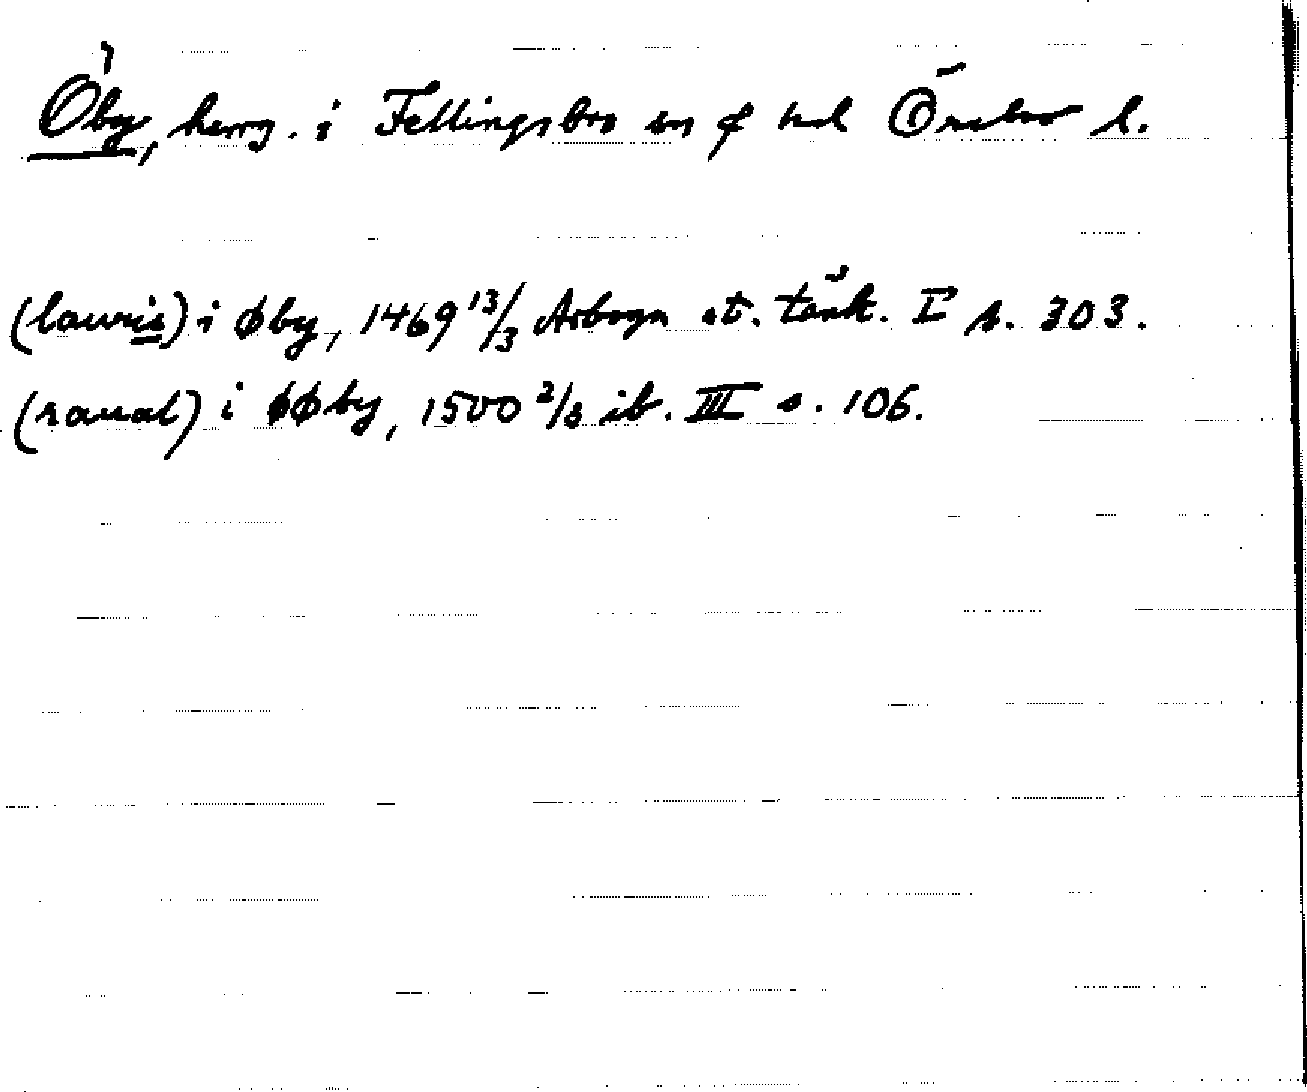 Öby, herrg. i Fellingsbro sn o hd Örebro l.
(lauris) i øby, 1469 13/3 Arboga st. tänk. I s. 303.
(raual) i øøby, 1500 2/3 ib. III s. 106.